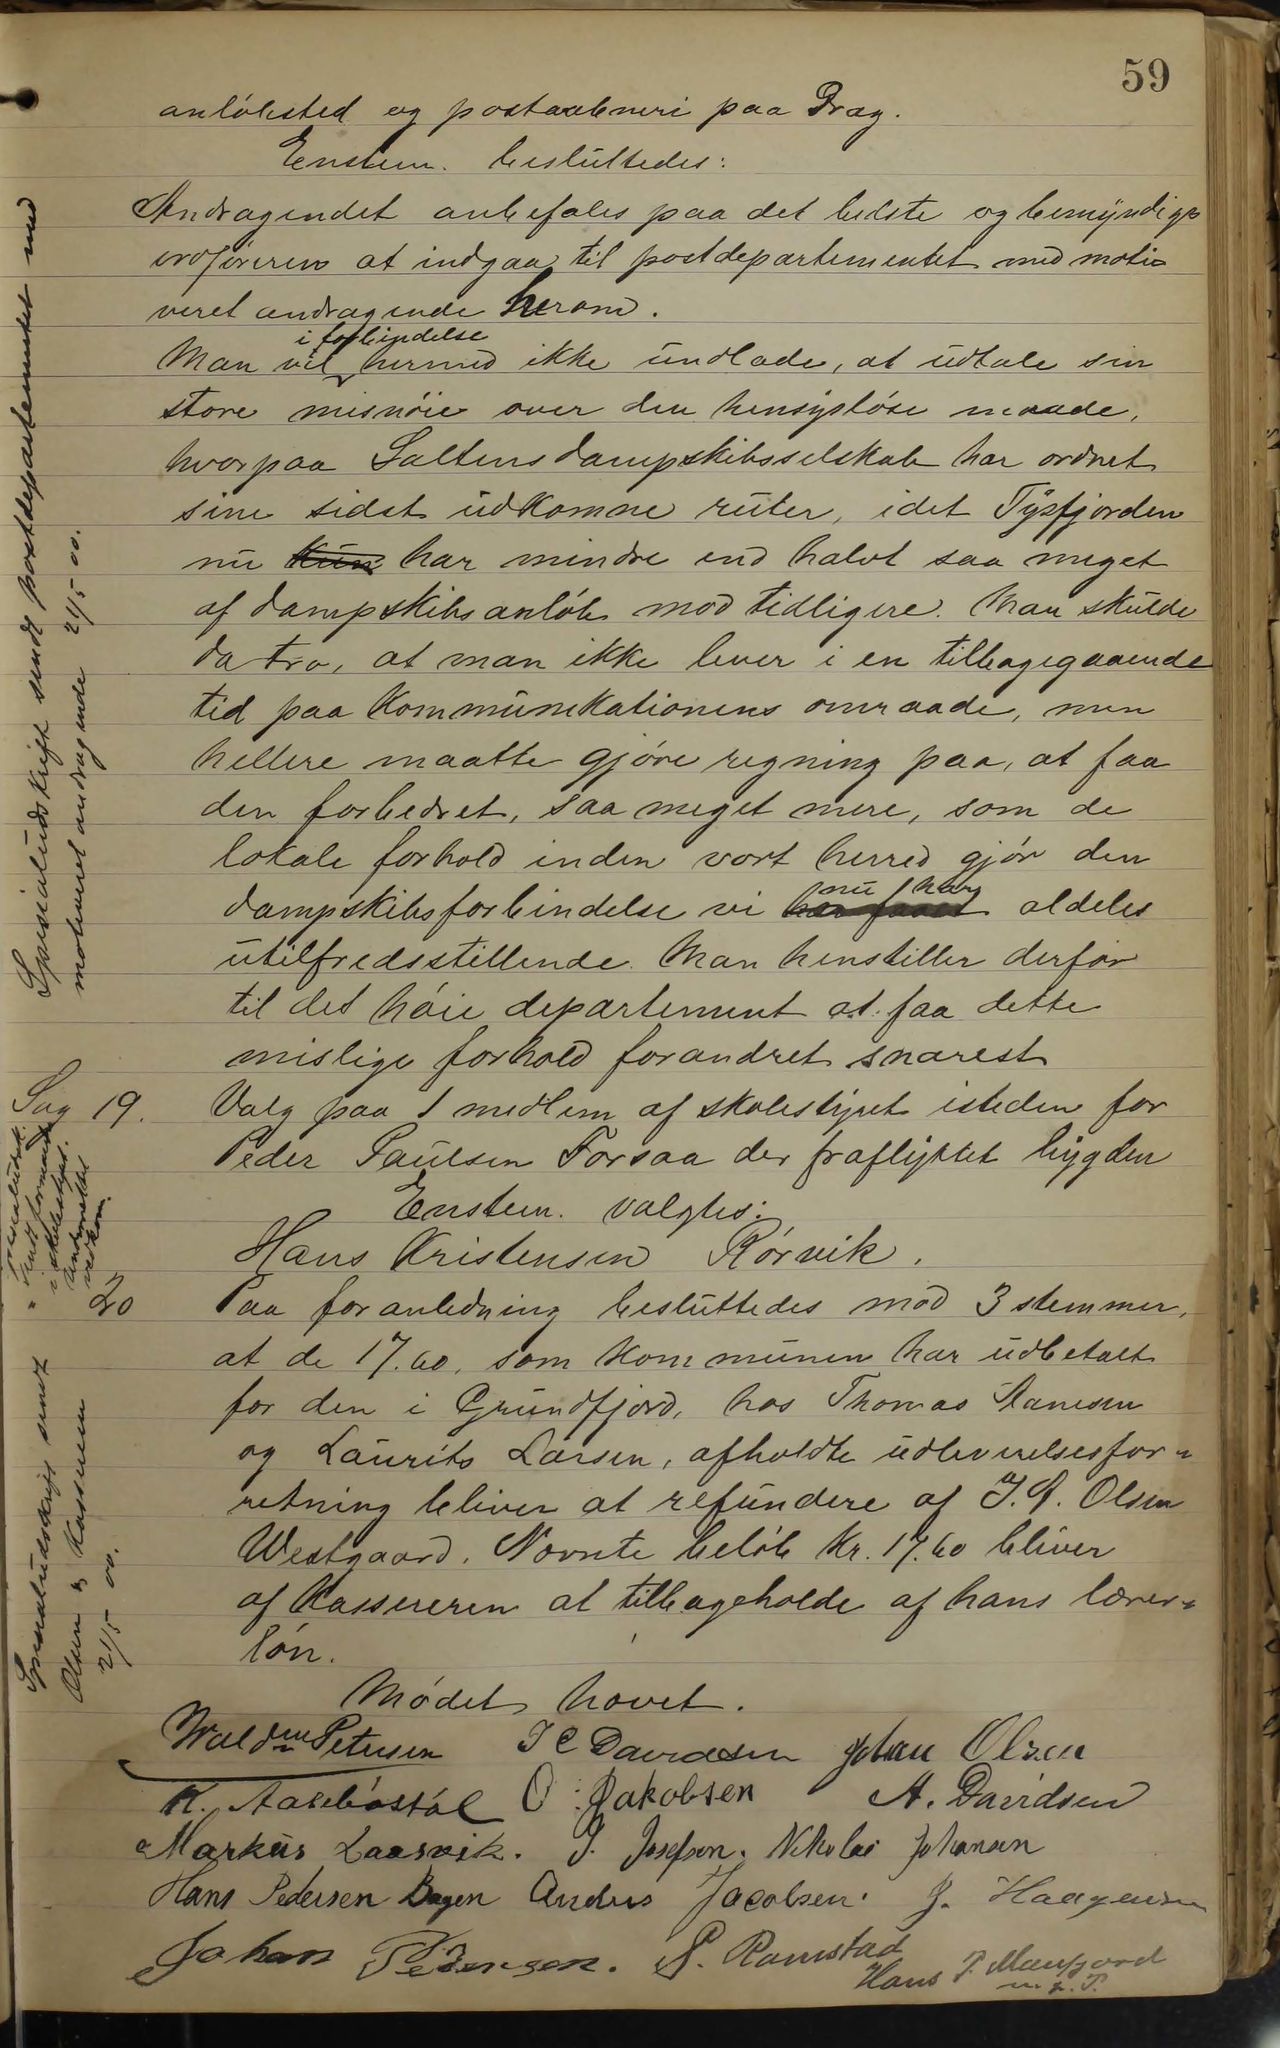 59
anløbsted og postaabneri paa Drag.
Enstem. besluttedes:
Andragendet anbefales paa det bedste og bemyndiges
ordføreren at indgaa til postdepartementet med moti-
veret andragende herom.
i forbindelse
Man vil hermed ikke undlade, at udtale sin
store misnøie over den hensynsløse maade,
hvorpaa Saltens dampskibsselskab har ordnet
sine sidst udkomne ruter, idet Tysfjorden
nu kun har mindre end halvt saa meget
af dampskibsanløb mod tidligere. Man skulde
da tro, at man ikke lever i en tilbagegaaende
tid paa Kommunikationens omraade, men
hellere maatte gjøre regning paa, at faa
den forbedret, saa meget mere, som de
lokale forhold inden vort herred gjør den
nu har
dampskibsforbindelse vi har faaet aldeles
utilfredsstillende. Man henstiller derfor
til det høie departement at faa dette
mislige forhold forandret snarest
Specialudskrift sendt postdepartementet med
motiveret andragende 21/5 00.
Sag 19. Valg paa 1 medlem af skolestyret isteden for
Peder Paulsen Forsaa der fraflyttet bygden
Enstem. valgtes:
Hans Kristensen Rørvik.
sendt formanden
i skolestyret.
Underrettet
vedkom.
" 20 Paa foranledning besluttedes mod 3 stemmer,
at de 17.60, som Kommunen har udbetalt
for den i Grundfjord, hos Thomas
og Laurits Larsen, afholdte udleverelsesfor-
retning bliver at refundere af J. P. Olsen
Westgaard. Nævnte beløb Kr. 17.60 bliver
af Kassereren at tilbageholde af hans lærer-
løn.
Specialudskrift sendt
Olsen og Kasseren
21/5 00.
Mødet hævet.
Waldm Petersen J C Davidsen Johan Olsen
K. O. Jakobsen A. Davidsen
Markus Laasvik. J. Josefsen. Nikolai Johansen
Hans Pedersen Andris Jacobsen. J. Haagensen
Johan Pedersen. P. Ramstad
Hans P. Mansjord
m. p. P.